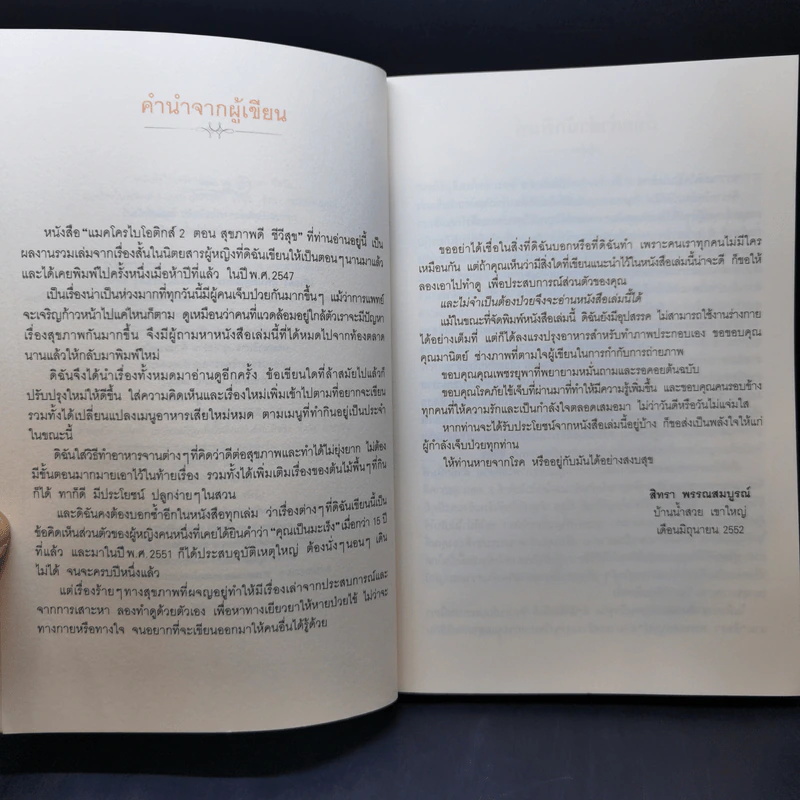 คำนำจากผู้เขียน
หนังสือ "แมคโครไบโอติกส์ 2 ตอน สุขภาพดี ชีวีสุข" ที่ท่านอ่านอยู่นี้ เป็น
ผลงานรวมเล่มจากเรื่องสั้นในนิตยสารผู้หญิงที่ดิฉันเขียนให้เป็นตอนๆนานมาแล้ว
และได้เคยพิมพ์ไปครั้งหนึ่งเมื่อห้าปีที่แล้ว ในปี พ.ศ. 2547
เป็นเรื่องน่าเป็นห่วงมากที่ทุกวันนี้มีผู้คนเจ็บป่วยกันมากขึ้นๆ แม้ว่าการแพทย์
จะเจริญก้าวหน้าไปแค่ไหนก็ตาม ดูเหมือนว่าคนที่แวดล้อมอยู่ใกล้ตัวเราจะมีปัญหา
เรื่องสุขภาพกันมากขึ้น จึงมีผู้ถามหาหนังสือเล่มนี้ที่ได้หมดไปจากท้องตลาด
นานแล้วให้กลับมาพิมพ์ใหม่
ดิฉันจึงได้นำเรื่องทั้งหมดมาอ่านดูอีกครั้ง ข้อเขียนใดที่ล้าสมัยไปแล้วก็
ปรับปรุงใหม่ให้ดีขึ้น ใส่ความคิดเห็นและเรื่องใหม่เพิ่มเข้าไปตามที่อยากจะเขียน
รวมทั้งได้เปลี่ยนแปลงเมนูอาหารเสียใหม่หมด ตามเมนูที่ทำกินอยู่เป็นประจำ
ในขณะนี้
ดิฉันใส่วิธีทำอาหารจานต่างๆที่คิดว่าดีต่อสุขภาพและทำได้ไม่ยุ่งยาก ไม่ต้อง
มีขั้นตอนมากมายเอาไว้ในท้ายเรื่อง รวมทั้งได้เพิ่มเติมเรื่องของต้นไม้พื้นๆที่กิน
ก็ได้ ทาก็ดี มีประโยชน์ ปลูกง่ายๆในสวน
และดิฉันคงต้องบอกซ้ำอีกในหนังสือทุกเล่ม ว่าเรื่องต่างๆที่ดิฉันเขียนนี้เป็น
ข้อคิดเห็นส่วนตัวของผู้หญิงคนหนึ่งที่เคยได้ยินคำว่า "คุณเป็นมะเร็ง" เมื่อกว่า 15 ปี
ที่แล้ว และมาในปี พ.ศ. 2551 ก็ได้ประสบอุบัติเหตุใหญ่ ต้องนั่งๆนอนๆ เดิน
ไม่ได้ จนจะครบปีหนึ่งแล้ว
แต่เรื่องร้ายๆทางสุขภาพที่ผจญอยู่ทำให้มีเรื่องเล่าจากประสบการณ์และ
จากการเสาะหา ลองทำดูด้วยตัวเอง เพื่อหาทางเยียวยาให้หายป่วยไข้ ไม่ว่าจะ
ทางกายหรือทางใจ จนอยากที่จะเขียนออกมาให้คนอื่นได้รู้ด้วย
ขออย่าได้เชื่อในสิ่งที่ดิฉันบอกหรือที่ดิฉันทำ เพราะคนเราทุกคนไม่มีใคร
เหมือนกัน แต่ถ้าคุณเห็นว่ามีสิ่งใดที่เขียนแนะนำไว้ในหนังสือเล่มนี้น่าจะดี ก็ขอให้
ลองเอาไปทำดู เพื่อประสบการณ์ส่วนตัวของคุณ
และไม่จำเป็นต้องป่วยจึงจะอ่านหนังสือเล่มนี้ได้
แม้ในขณะที่จัดพิมพ์หนังสือเล่มนี้ ดิฉันยังมีอุปสรรค ไม่สามารถใช้งานร่างกาย
ได้อย่างเต็มที่ แต่ก็ได้ลงแรงปรุงอาหารสำหรับทำภาพประกอบเอง ขอขอบคุณ
คุณมานิตย์ ช่างภาพที่ตามใจผู้เขียนในการกำกับการถ่ายภาพ
ขอบคุณคุณเพชรยุพาที่พยายามหมั่นถามและรอคอยต้นฉบับ
ขอบคุณโรคภัยไข้เจ็บที่ผ่านมาที่ทำให้มีความรู้เพิ่มขึ้น และขอบคุณคนรอบข้าง
ทุกคนที่ให้ความรักและเป็นกำลังใจตลอดเสมอมา ไม่ว่าวันดีหรือวันไม่แจ่มใส
หากท่านจะได้รับประโยชน์จากหนังสือเล่มนี้อยู่บ้าง ก็ขอส่งเป็นพลังใจให้แก่
ผู้กำลังเจ็บป่วยทุกท่าน
ให้ท่านหายจากโรค หรืออยู่กับมันได้อย่างสงบสุข
สิทรา พรรณสมบูรณ์
บ้านน้ำสวย เขาใหญ่
เดือนมิถุนายน 2552